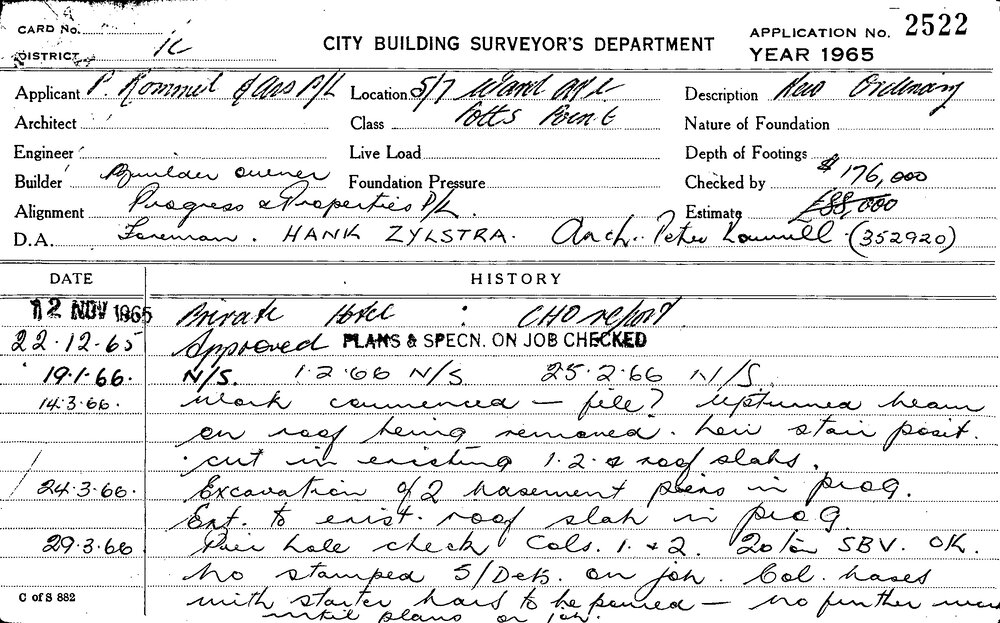 CARD No.
DISTRICT
CITY BUILDING SURVEYOR'S DEPARTMENT
APPLICATION No. 2522
YEAR 1965
Applicant P. Rommel & Ors P/L Location 5/7 Ward Ave Description New Ordinary
Architect Class Potts Point Nature of Foundation
Engineer Live Load Depth of Footings
Builder Builder owner Foundation Pressure Checked by $176,000
Alignment Progress & Properties P/L. Estimate £88,000
D.A. Foreman. HANK ZYLSTRA. Arch. Peter (352920)
DATE HISTORY
12 NOV 1965 Private Hotel : CHO report
22.12.65 Approved PLANS & SPECN. ON JOB CHECKED
19.1.66. N/S. 1.2.66 N/S 25.2.66 N/S.
14.3.66. Work commenced — file? Upturned beam
on roof being removed. New stair posit.
cut in existing 1.2. & roof slabs.
24.3.66. Excavation of 2 basement piers in prog.
Ext. to exist. roof slab in prog.
29.3.66 Pier hole check Cols. 1. & 2. 20 ton SBV. OK.
No stamped S/Dets. on job. Col. bases
C of S 882
with starter bars to be poured — no further work
until plans on job.